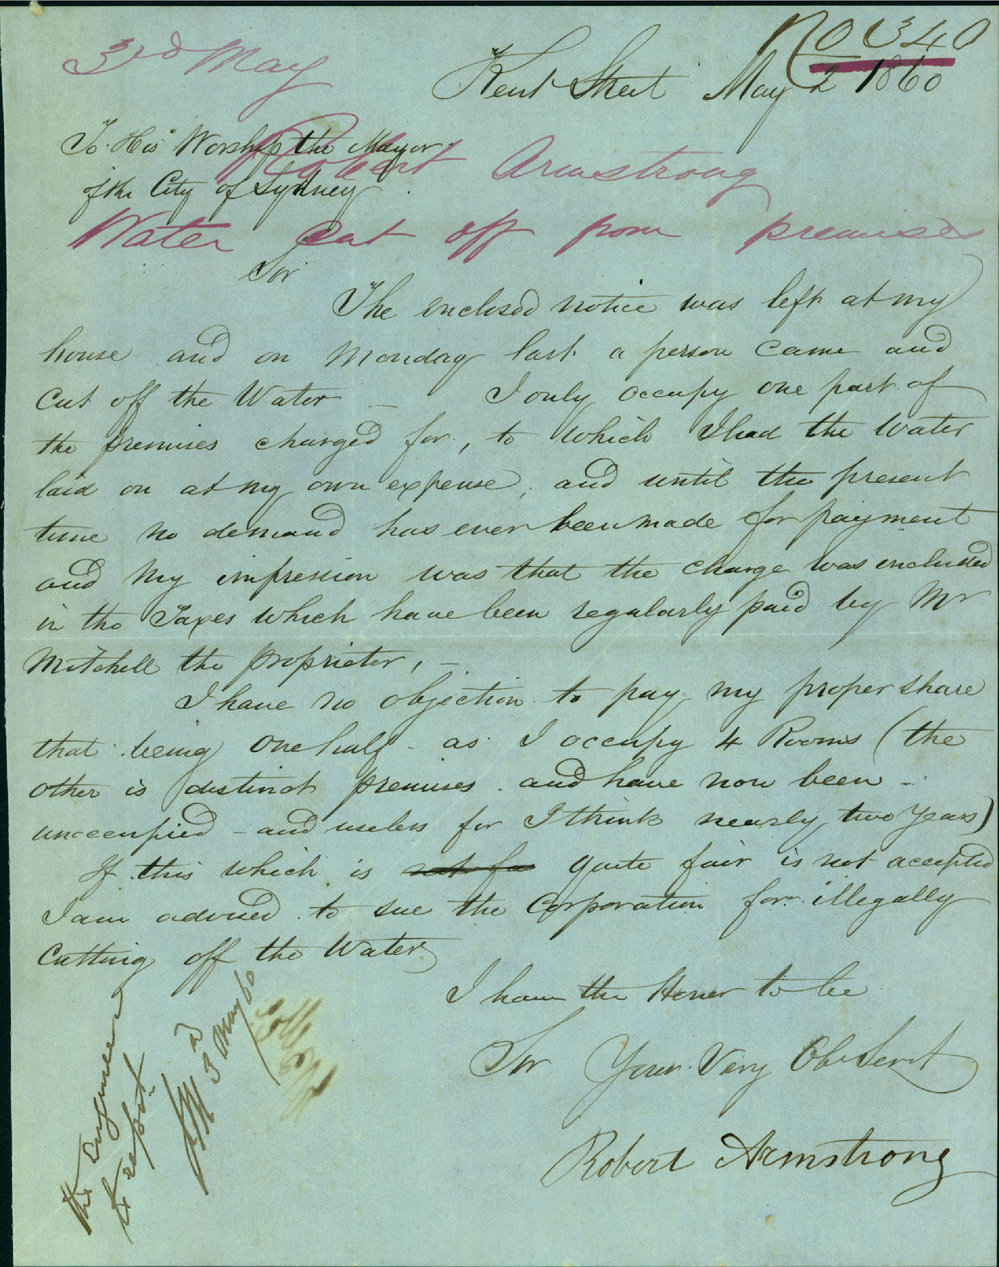 No 340
3rd May
Kent Street May 2 1860
To His Worship the Mayor
of the City of Sydney
Robert Armstrong
Water Cut off from premises
Sir
The enclosed notice was left at my
house and on Monday last a person came and
cut off the Water – I only occupy one part of
the premises charged for, to which I had the Water
laid on at my own expense, and until the present
time no demand has ever been made for payment
and my impression was that the charge was included
in the Taxes which have been regularly paid by Mr
Mitchell the proprietor, –
I have no objection to pay my proper share
that being one half – as I occupy 4 Rooms (the
other is distinct premises and have now been –
unoccupied – and useless for I think nearly two years)
If this which is not fa quite fair is not accepted
I am advised to sue the Corporation for illegally
cutting off the Water
I have the Honor to be
Sir Your Very Ob Servt
Robert Armstrong
The Engineer
to report
3d May 60